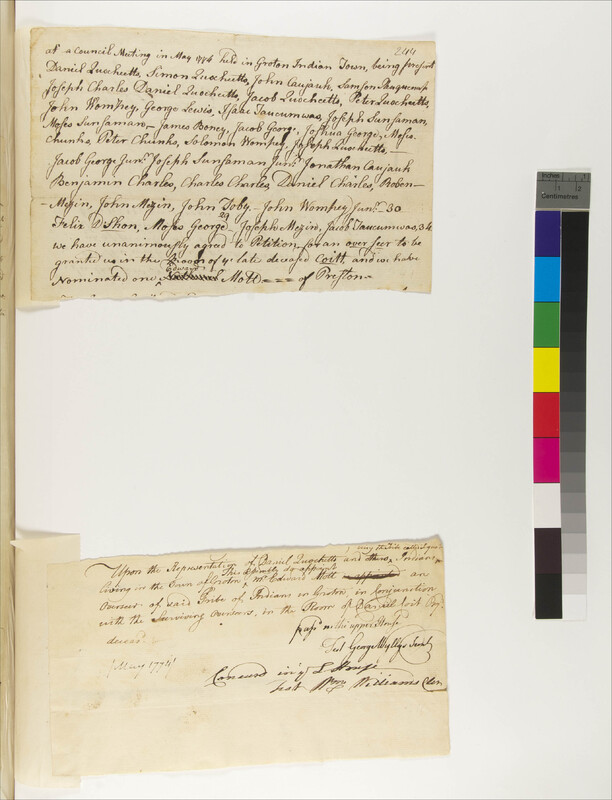 244
at a Council Meeting in May 1774 held in Groton Indian Town, being present
Daniel Quocheets, Simon Quocheets, John Caujauh, Samson
Joseph Charles Daniel Quocheets Jacob Quocheets, Peter Quocheets,
John Wompey, George Lewis, Isaac Taucumwas, Joseph Sunsaman,
Moses Sunsaman, James Boney, Jacob Georg, Joshua George, Moses
Chunks, Peter Chunks, Solomon Wompey, Joseph Quocheets,
Jacob George Junr. Joseph Sunsaman Junr. Jonathan Caujauh
Benjamin Charles, Charles Charles, Daniel Charles, Roben
Mezin, John Mezin, John Toby - John Wompey Junr. 30
Felix DShon, Moses George, Joseph Mezin, Jacob Taucumwas, 34
we have unanimously agreed to Petition for an over seer to be
granted us in the Room of ye late deceased Coitt and we have
Nominated one Edward Mott of Preston
Upon the Representation of Daniel Quocheets and others Indians
living in the Town of Groton This Assembly do appoint Mr Edward Mott an
Overseer of said Tribe of Indians in Groton in Conjunction
with the Surviving Overseers, in the Room of Daniel Coit Esqr
deceasd
pass'd in the upper House
Test George Wyllys Secrety
[May 1774]
Concurd in ye L House
Test Wm Williams Clerk